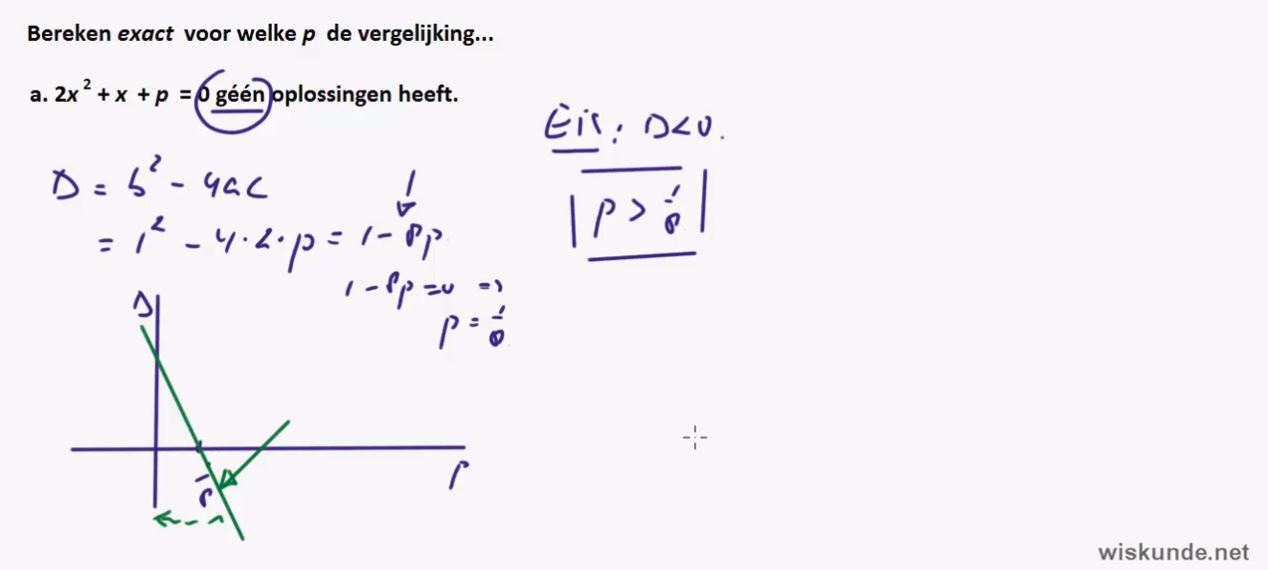 Bereken exact voor welke p de vergelijking...
a. 2x² + x + p = 0 géén oplossingen heeft.
Eis: D<0.
D = b² - 4ac
p > 1/8
= 1² - 4·2·p = 1 - 8p
1 - 8p = 0 =>
p = 1/8
D
1/8
p
wiskunde.net